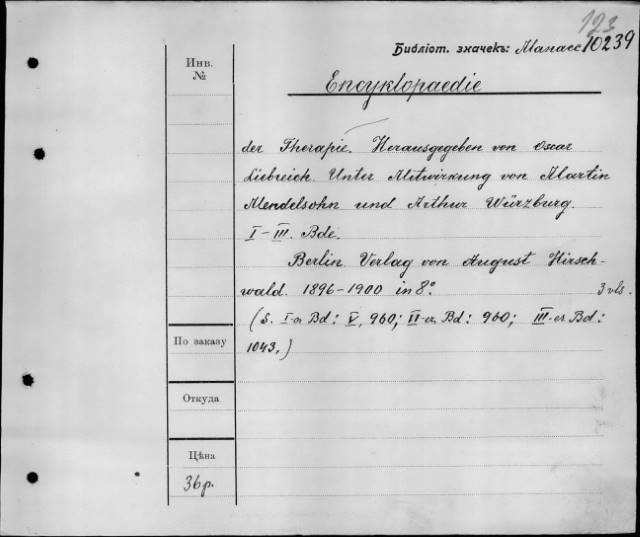 123
Библіот. значекъ: Manacc 10239
Инв.
№
Encyklopaedie
der Therapie. Herausgegeben von Oscar
Liebreich. Unter Mitwirkung von Martin
Mendelsohn und Arthur Würzburg.
I–III. Bde.
Berlin. Verlag von August Hirsch-
wald. 1896–1900 in 8° 3 vls.
(S. I-er Bd: V, 960; II-er Bd: 960; III-er Bd:
1043.)
По заказу
Откуда
Цѣна
36 р.